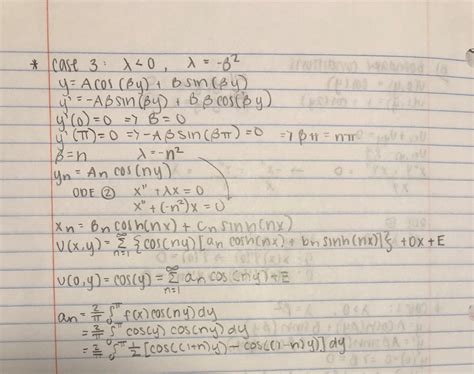 * case 3: λ<0, λ = -β²
y = A cos(βy) + B sin(βy)
y' = -Aβ sin(βy) + Bβ cos(βy)
y'(0) = 0 => B = 0
y'(π) = 0 => -Aβ sin(βπ) = 0 => βπ = nπ
β = n λ = -n²
yn = An cos(ny)
ODE ② x'' + λx = 0
x'' + (-n²)x = 0
xn = Bn cosh(nx) + Cn sinh(nx)
u(x,y) = ∞Σn=1 {cos(ny)[an cosh(nx) + bn sinh(nx)]} + Dx + E
u(0,y) = cos(y) = ∞Σn=1 an cos(ny) + E
an = 2/π ∫π f(x) cos(ny) dy
= 2/π ∫π cos(y) cos(ny) dy
= 2/π ∫π 1/2 [cos((1+n)y) - cos((1-n)y)] dy